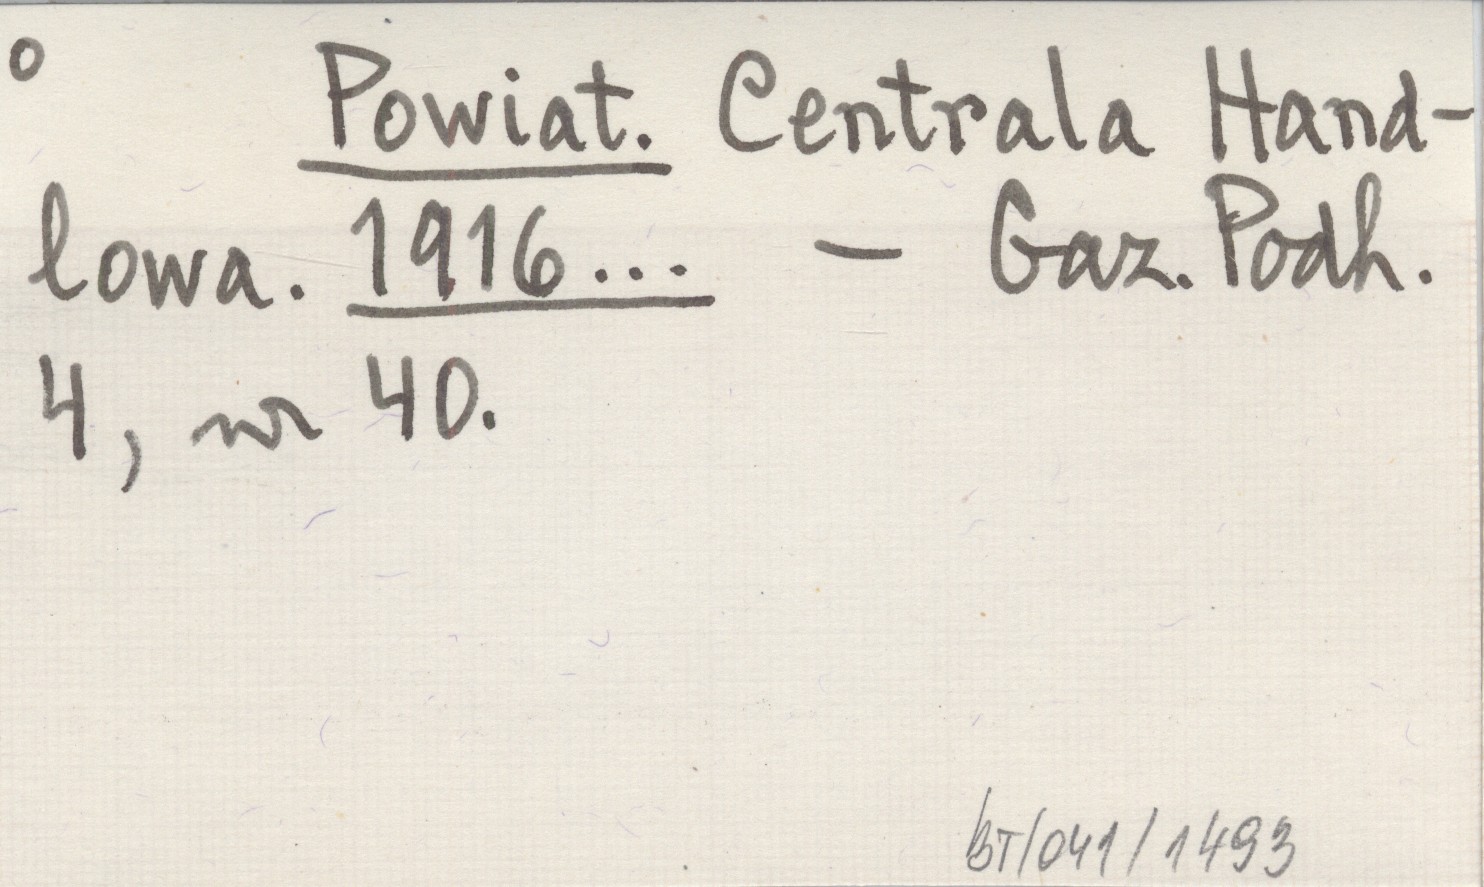 o
Powiat. Centrala Hand-
lowa. 1916... — Gaz. Podh.
4, nr 40.
BT/041/1493